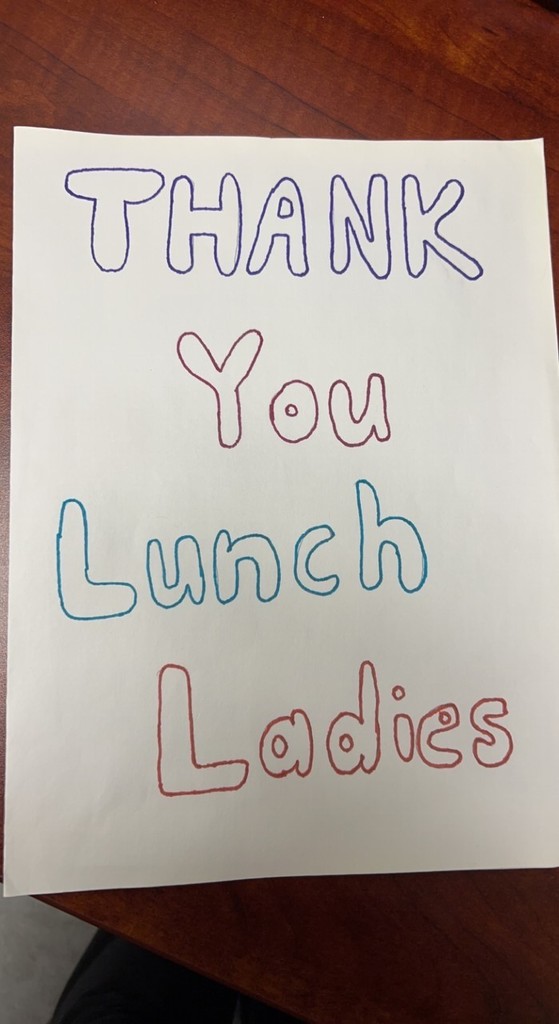 THANK
You
Lunch
Ladies